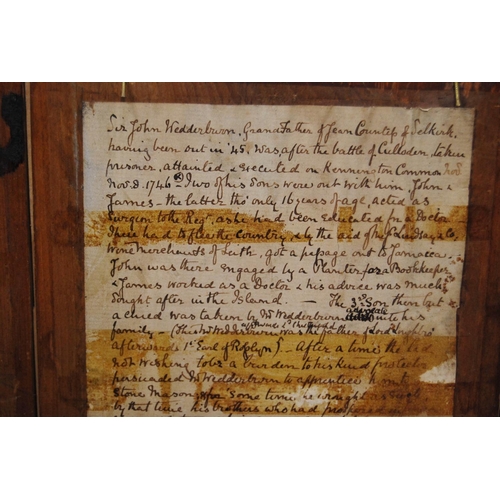 Sir John Wedderburn, Grand Father of Jean Countess of Selkirk,
having been out in '45, was after the battle of Culloden, taken
prisoner, attainted & executed on Kennington Common
Nov. 1746 Two of his Sons were out with him, John &
James – the latter tho' only 16 years of age, acted as
Surgeon to the Regt, as he had been educated for a Doctor
These had to flee the Country, & by the aid of Lindsay & Co
Wine Merchants of Leith, got a passage out to Jamaica
John was there engaged by a Planter, as a Bookkeeper
& James worked as a Doctor & his advice was much
sought after in the Island. – The 3rd Son then but
a child was taken by Mr Wedderburn advocate into his
family – (This Mr Wedderburn was the father of Lord Loughbro'
afterwards 1st Earl of Rosslyn) – After a time the lad
not wishing to be a burden to his kind protector
persuaded Mr Wedderburn to apprentice him to
Stone Mason, Some time he wrought as such
by that time his brothers who had prospered in